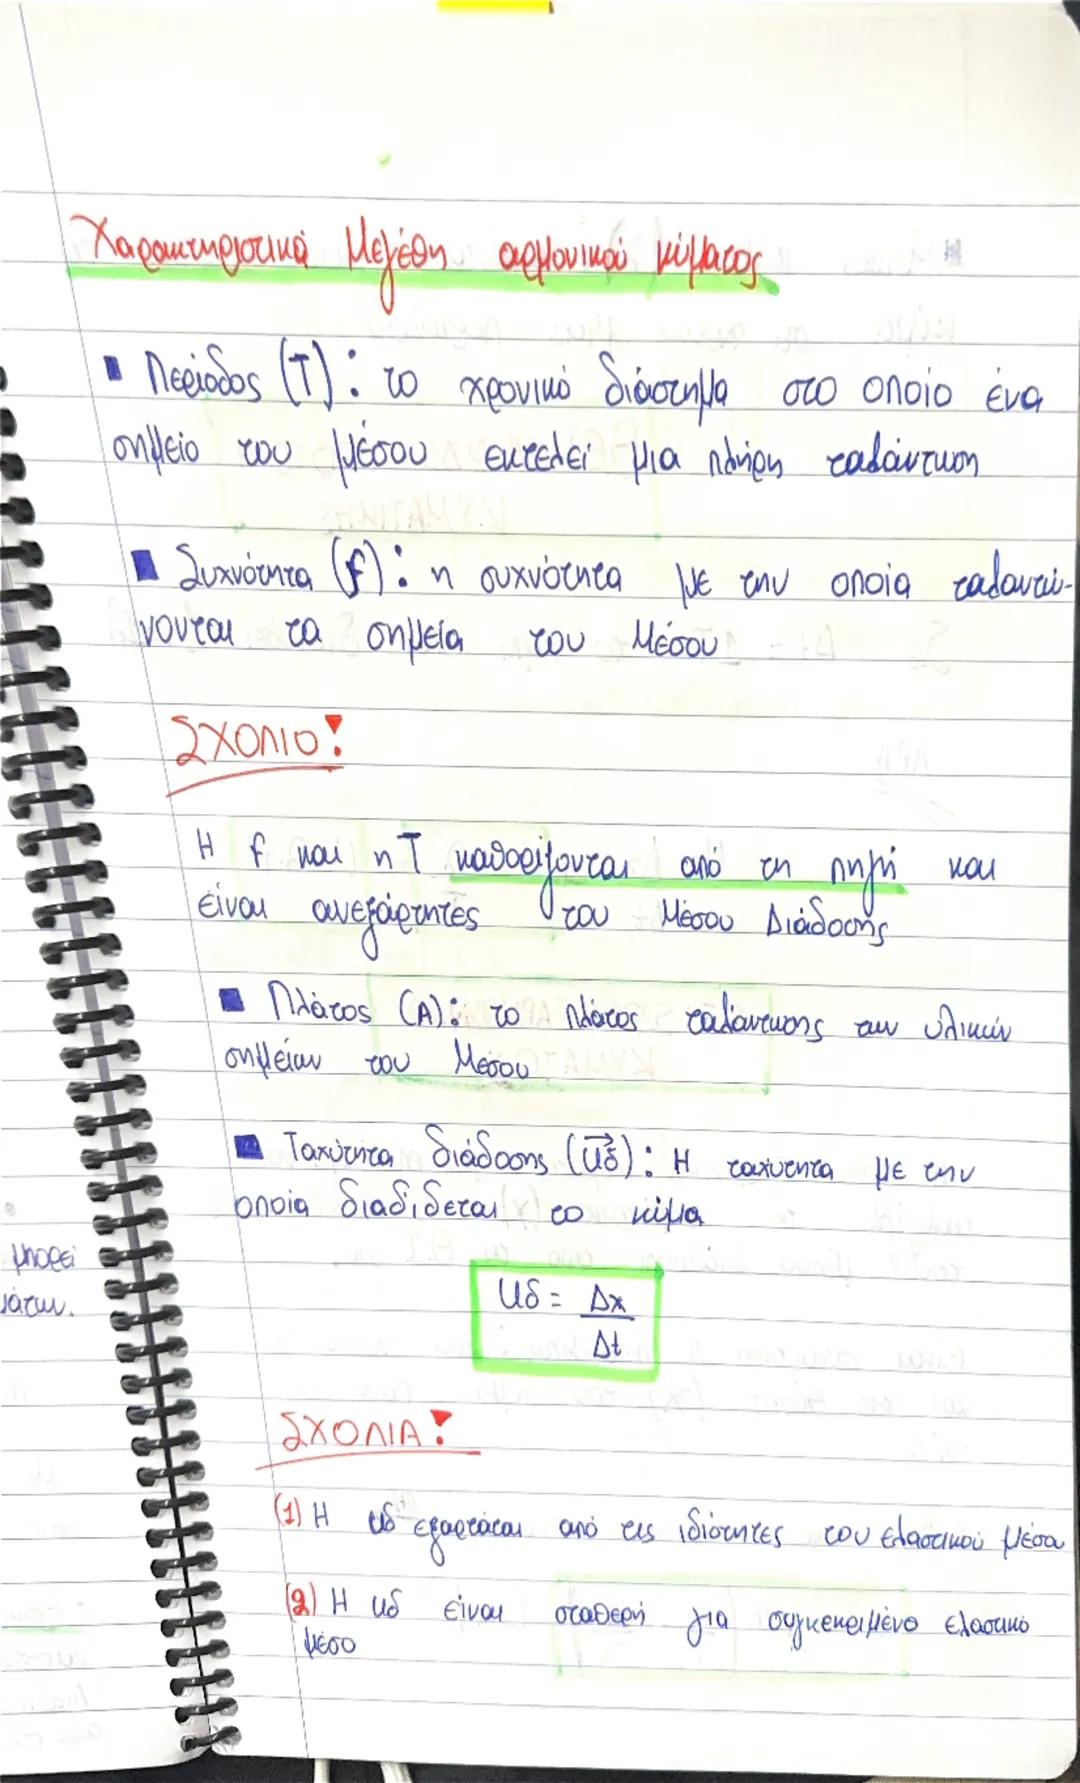 Χαρακτηριστικά Μεγέθη αρμονικού κύματος
▪ Περίοδος (T): το χρονικό διάστημα στο οποίο ένα
σημείο του μέσου εκτελεί μια πλήρη ταλάντωση
▪ Συχνότητα (f): η συχνότητα με την οποία ταλαντώ-
νονται τα σημεία του Μέσου
ΣΧΟΛΙΟ!
Η f και η T καθορίζονται από τη πηγή και
είναι ανεξάρτητες του Μέσου Διάδοσης
▪ Πλάτος (A): το πλάτος ταλάντωσης των υλικών
σημείων του Μέσου
▪ Ταχύτητα διάδοσης (υδ): Η ταχύτητα με την
οποία διαδίδεται το κύμα
υδ = Δx
Δt
ΣΧΟΛΙΑ!
(1) Η υδ εξαρτάται από τις ιδιότητες του ελαστικού μέσου
(2) Η υδ είναι σταθερή για συγκεκριμένο ελαστικό
μέσο
μπορεί